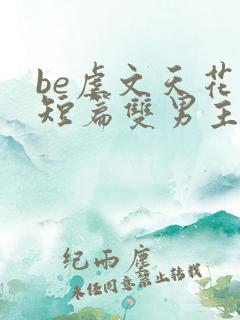 be虐文天花
短篇雙男主
纪雨塵
未经同意禁止转载